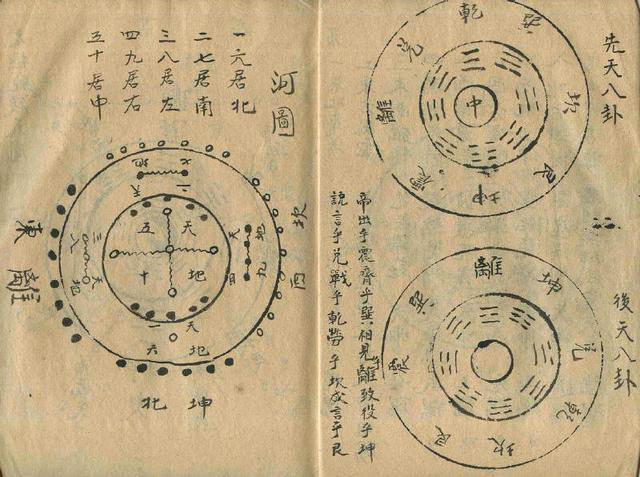 先天八卦
乾
兌
離
坎
艮
坤
中
後天八卦
離
坤
兌
乾
坎
艮
震
巽
帝出乎震齊乎巽相見乎離致役乎坤
說言乎兌戰乎乾勞乎坎成言乎艮
河圖
一六居北
二七居南
三八居左
四九居右
五十居中
七
地
二
天
坎
西
地
九
天
四
五
天
十
地
東
離
三
八
天
地
天
一
地
六
北
坤